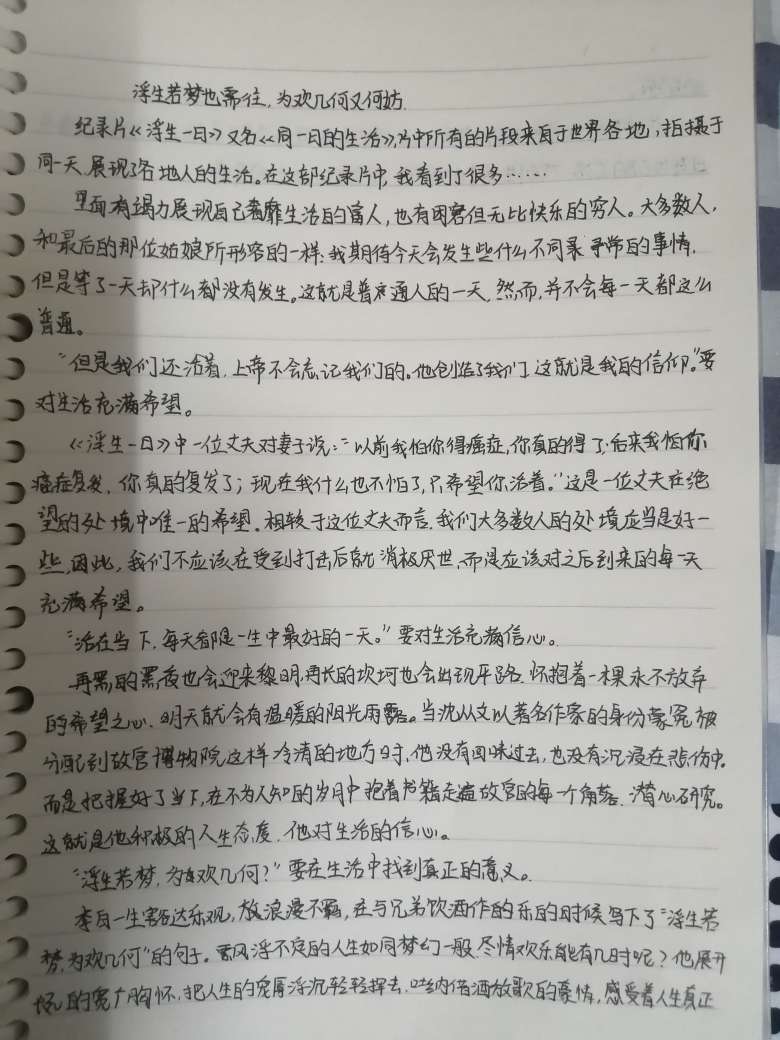 浮生若梦也需往，为欢几何又何妨
纪录片《浮生一日》又名《同一日的生活》，片中所有的片段来自于世界各地，拍摄于
同一天，展现了各地人的生活。在这部纪录片中，我看到了很多……
里面有竭力展现自己奢靡生活的富人，也有困窘但无比快乐的穷人。大多数人，
和最后的那位姑娘所形容的一样：我期待今天会发生些什么不同寻常的事情，
但是等了一天却什么都没有发生。这就是普通人的一天，然而，并不会每一天都这么
普通。
“但是我们还活着，上帝不会忘记我们的。他创造了我们，这就是我的信仰。”要
对生活充满希望。
《浮生一日》中一位丈夫对妻子说：“以前我怕你得癌症，你真的得了；后来我怕你
癌症复发，你真的复发了；现在我什么也不怕了，只希望你活着。”这是一位丈夫在绝
望的处境中唯一的希望。相较于这位丈夫而言，我们大多数人的处境应当是好一
些，因此，我们不应该在受到打击后就消极厌世，而是应该对之后到来的每一天
充满希望。
“活在当下，每天都是一生中最好的一天。”要对生活充满信心。
再黑的黑夜也会迎来黎明，再长的坎坷也会出现平路，怀抱着一棵永不放弃
的希望之心，明天就会有温暖的阳光雨露。当沈从文以著名作家的身份蒙冤被
分配到故宫博物院这样冷清的地方时，他没有回味过去，也没有沉浸在悲伤中，
而是把握好了当下，在不为人知的岁月中抱着书籍走遍故宫的每一个角落，潜心研究。
这就是他积极的人生态度，他对生活的信心。
“浮生若梦，为欢几何？”要在生活中找到真正的意义。
李白一生豁达乐观，放浪漫不羁，在与兄弟饮酒作的乐的时候写下了“浮生若
梦，为欢几何”的句子。飘浮不定的人生如同梦幻一般，尽情欢乐能有几时呢？他展开
的宽广胸怀，把人生的宠辱浮沉轻轻挥去，吐纳借酒放歌的豪情，感受着人生真正